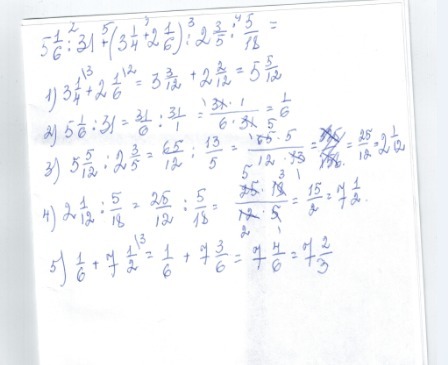 5 1/6 : 31 + (3 1/4 + 2 1/6) : 2 3/5 : 5/18 =
1) 3 1/4 + 2 1/6 = 3 3/12 + 2 2/12 = 5 5/12
2) 5 1/6 : 31 = 31/6 : 31/1 = 31 · 1 / 6 · 31 = 1/6
3) 5 5/12 : 2 3/5 = 65/12 : 13/5 = 65 · 5 / 12 · 13 = = 25/12 = 2 1/12
4) 2 1/12 : 5/18 = 25/12 : 5/18 = 25 · 18 / 12 · 5 = 15/2 = 7 1/2.
5) 1/6 + 7 1/2 = 1/6 + 7 3/6 = 7 4/6 = 7 2/3